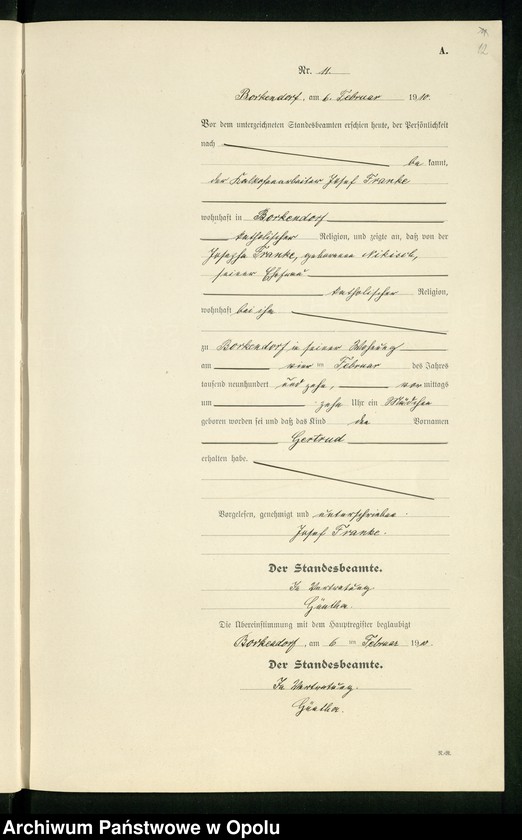 A.
12
Nr. 11.
Borkendorf, am 6. Februar 1910.
Vor dem unterzeichneten Standesbeamten erschien heute, der Persönlichkeit
nach
be kannt,
der Kalkofenarbeiter Josef Franke
wohnhaft in Borkendorf
katholischer Religion, und zeigte an, daß von der
Josepha Franke, geborenen Nikisch,
seiner Ehefrau
katholischer Religion,
wohnhaft bei ihm
zu Borkendorf in seiner Wohnung
am vier ten Februar des Jahres
tausend neunhundert und zehn, vor mittags
um zehn Uhr ein Mädchen
geboren worden sei und daß das Kind den Vornamen
Gertrud
erhalten habe.
Vorgelesen, genehmigt und unterschrieben.
Josef Franke.
Der Standesbeamte.
In Vertretung
Die Übereinstimmung mit dem Hauptregister beglaubigt
Borkendorf, am 6 ten Februar 1910.
Der Standesbeamte.
In Vertretung.
R.-R.
Archiwum Państwowe w Opolu